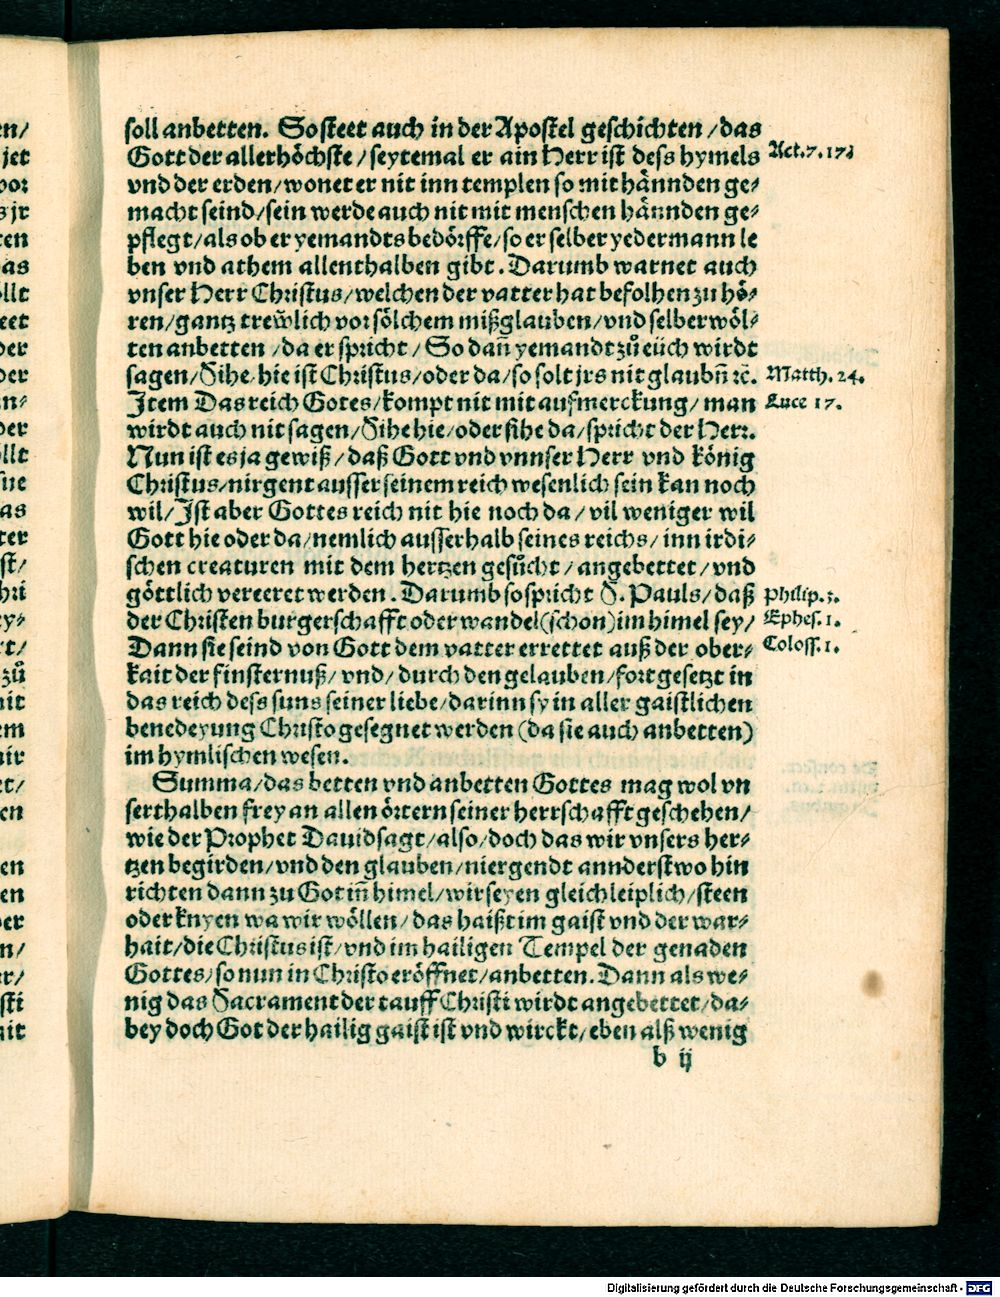 soll anbetten. So steet auch in der Apostel geschichten / das
Gott der allerhöchste / seytemal er ain Herr ist dess hymels
Act.7.17.
vnd der erden / wonet er nit inn templen so mit hännden ge⸗
macht seind / sein werde auch nit mit menschen hännden ge⸗
pflegt / als ob er yemandts bedörffe / so er selber yedermann le
ben vnd athem allenthalben gibt. Darumb warnet auch
vnser Herr Christus / welchen der vatter hat befolhen zu hö⸗
ren / gantz trewlich vor sölchem mißglauben / vnd selber wöl⸗
ten anbetten / da er spricht / So dañ yemandt zů eüch wirdt
sagen / Sihe hie ist Christus / oder da / so solt jrs nit glaubñ ꝛc̃.
Matth. 24.
Item Das reich Gotes / kompt nit mit aufmerckung / man
Luce 17.
wirdt auch nit sagen / Sihe hie / oder sihe da / spricht der Herr.
Nun ist es ja gewiß / daß Gott vnd vnnser Herr vnd könig
Christus / nirgent ausser seinem reich wesenlich sein kan noch
wil / Ist aber Gottes reich nit hie noch da / vil weniger wil
Gott hie oder da / nemlich ausserhalb seines reichs / inn irdi⸗
schen creaturen mit dem hertzen gesůcht / angebettet / vnd
göttlich vereeret werden. Darumb so spricht S. Pauls / daß
Philip. 3.
der Christen burgerschafft oder wandel (schon) im himel sey /
Ephes. 1.
Dann sie seind von Gott dem vatter errettet auß der ober⸗
Coloss. 1.
kait der finsternuß / vnd / durch den gelauben / fort gesetzt in
das reich dess suns seiner liebe / darinn sy in aller gaistlichen
benedeyung Christo gesegnet werden (da sie auch anbetten)
im hymlischen wesen.
Summa / das betten vnd anbetten Gottes mag wol vn
serthalben frey an allen örtern seiner herrschafft geschehen /
wie der Prophet Dauid sagt / also / doch das wir vnsers her⸗
tzen begirden / vnd den glauben / niergendt annderstwo hin
richten dann zu Got iñ himel / wir seyen gleich leiplich / steen
oder knyen wa wir wöllen / das haißt im gaist vnd der war⸗
hait / die Christus ist / vnd im hailigen Tempel der genaden
Gottes / so nun in Christo eröffnet / anbetten. Dann als we⸗
nig das Sacrament der tauff Christi wirdt angebettet / da⸗
bey doch Got der hailig gaist ist vnd wirckt / eben alß wenig
b ij
Digitalisierung gefördert durch die Deutsche Forschungsgemeinschaft - DFG